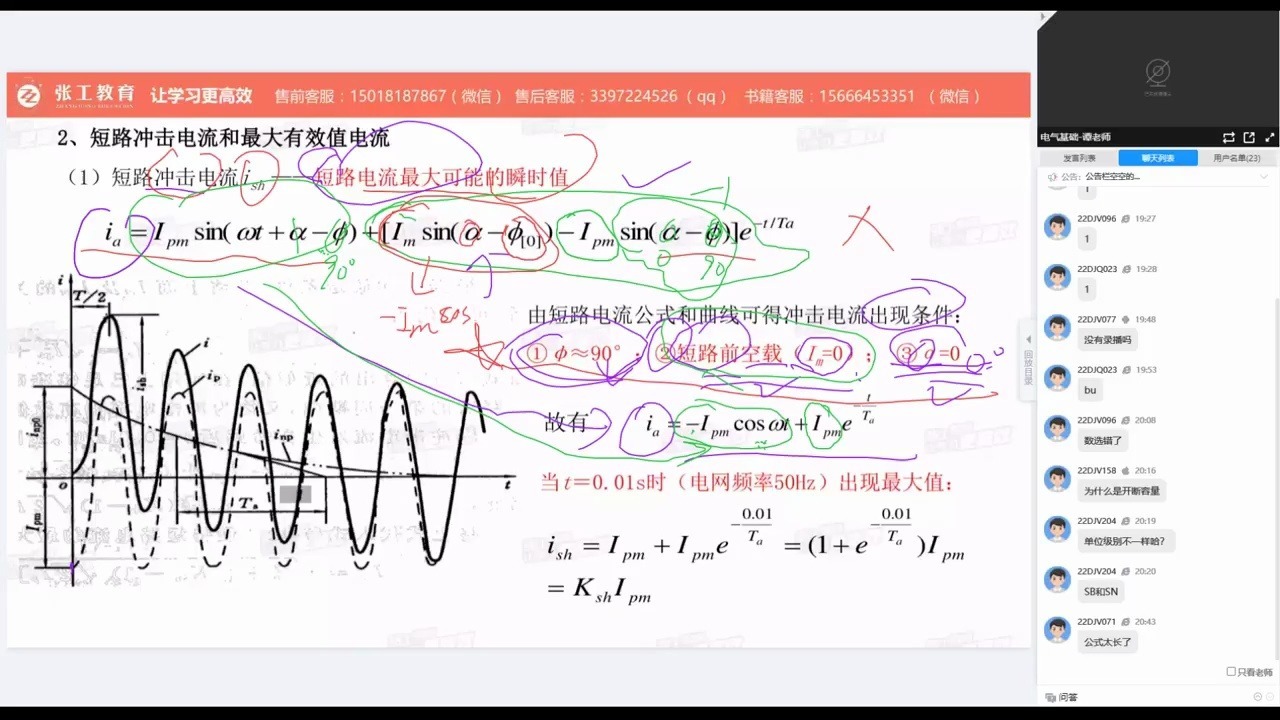 张工教育 让学习更高效 售前客服：15018187867（微信） 售后客服：3397224526（qq） 书籍客服：15666453351 （微信）
2、短路冲击电流和最大有效值电流
（1）短路冲击电流i_sh ——短路电流最大可能的瞬时值
i_a = I_pm sin(ωt+α−ϕ)+[I_m sin(α−ϕ_[0])−I_pm sin(α−ϕ)]e^{-t/Ta}
90°
0 90
-I_m
由短路电流公式和曲线可得冲击电流出现条件：
① ϕ≈90°；②短路前空载（I_m=0）；③ α=0
故有 i_a = −I_pm cosωt + I_pm e^{-t/T_a}
当t=0.01s时（电网频率50Hz）出现最大值：
i_sh = I_pm + I_pm e^{-0.01/T_a} = (1+e^{-0.01/T_a})I_pm
= K_sh I_pm
i
T/2
i
i_p
i_np
i_np0
o
t
T_a
I_pm
电气基础-谭老师
发言列表 聊天列表 用户名单(23)
公告：公告栏空空的...
回放目录
1
22DJV096 19:27
1
22DJQ023 19:28
1
22DJV077 19:48
没有录播吗
22DJQ023 19:53
bu
22DJV096 20:08
数选错了
22DJV158 20:16
为什么是开断容量
22DJV204 20:19
单位级别不一样哈?
22DJV204 20:20
SB和SN
22DJV071 20:43
公式太长了
只看老师
问答